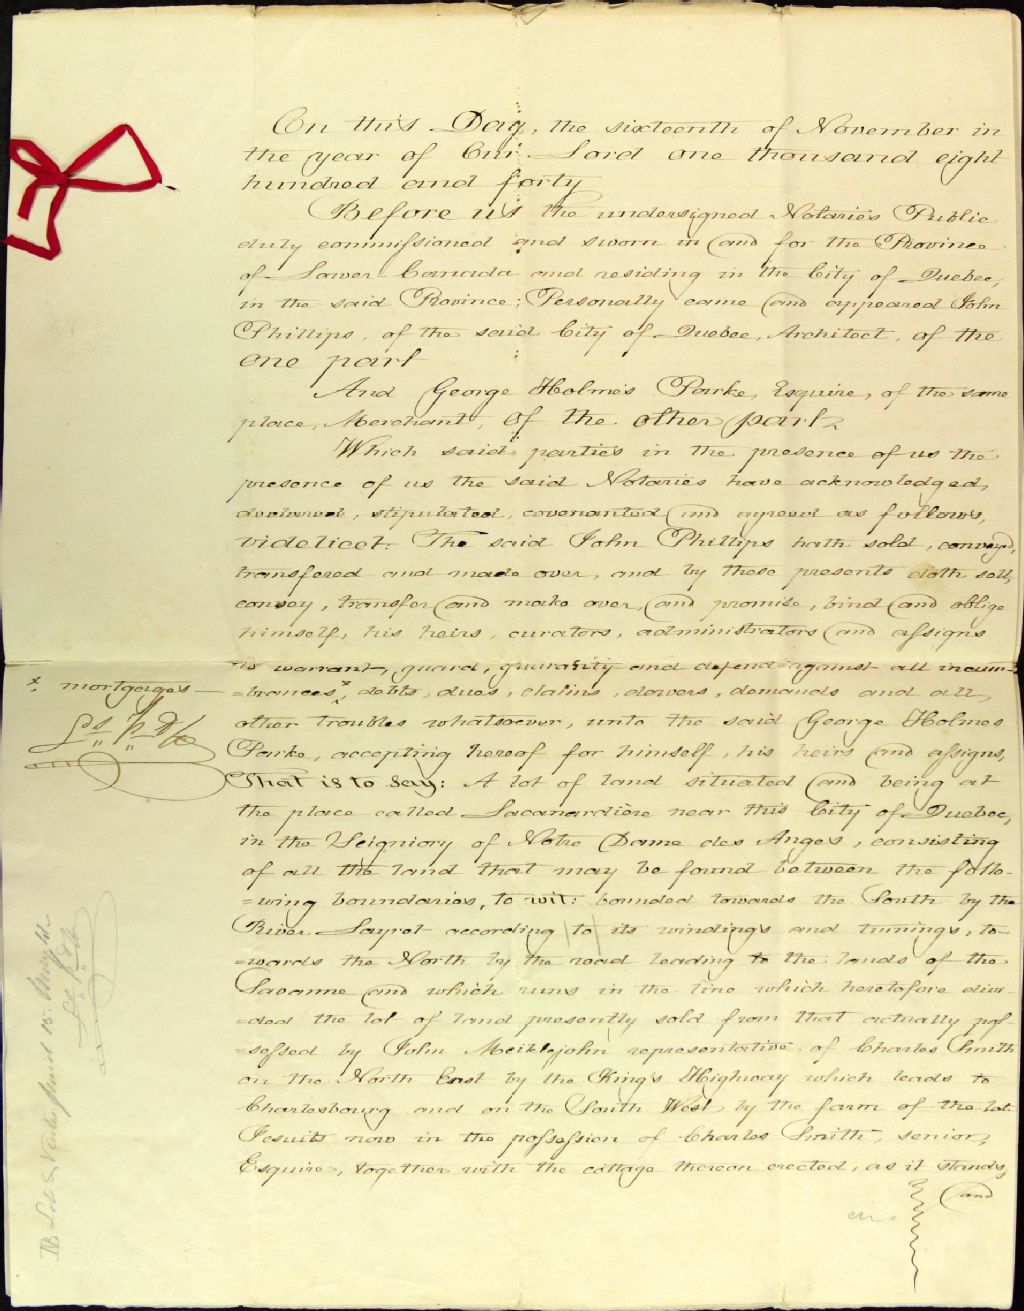 On this Day, the sixteenth of November in
the year of Our Lord one thousand eight
hundred and forty
Before us the undersigned Notaries Public
duly commissioned and sworn in and for the Province
of Lower-Canada and residing in the City of Quebec,
in the said Province; Personally came and appeared John
Phillips, of the said City of Quebec, Architect, of the
one part
And George Holmes Parke, Esquire, of the same
place, Merchant, of the other part
Which said parties in the presence of us the
presence of us the said Notaries have acknowledged,
declared, stipulated, covenanted and agreed as follows,
videlicet: The said John Phillips hath sold, conveyed,
transfered and made over, and by these presents doth sell,
convey, transfer and make over, and promise, bind and oblige
himself, his heirs, curators, administrators and assigns
to warrant, guard, guaranty and defend against all incum-
x. mortgages —
=brances x, debts, dues, claims, dowers, demands and all
other troubles whatsoever, unto the said George Holmes
Parke, accepting hereof for himself, his heirs and assigns,
That is to Say: A lot of land situated and being at
the place called Lacanardière near this City of Quebec,
in the Seigniory of Notre Dame des Anges, consisting
of all the land that may be found between the follo-
=wing boundaries, to wit: bounded towards the South by the
River Layret according to its windings and turnings, to-
=wards the North by the road leading to the lands of the
Savanne and which runs in the line which heretofore divi-
=ded the lot of land presently sold from that actually pos-
=sessed by John Meiklejohn representative of Charles Smith
on the North East by the King's Highway which leads to
Charlesbourg and on the South West by the farm of the late
Jesuits now in the possession of Charles Smith, senior,
Esquire, together with the cottage thereon erected, as it stands,
and